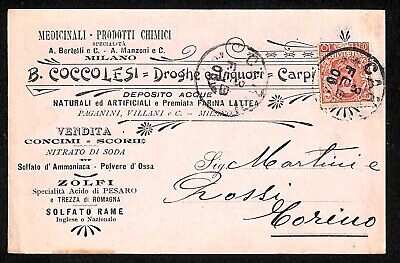 MEDICINALI - PRODOTTI CHIMICI
SPECIALITÀ
A. Bertelli e C. - A. Manzoni e C.
MILANO
B. COCCOLESI = Droghe e Liquori = Carpi
DEPOSITO ACQUE
NATURALI ed ARTIFICIALI e Premiata FARINA LATTEA
PAGANINI, VILLANI e C. - MILANO
VENDITA
CONCIMI - SCORIE
NITRATO DI SODA
Solfato d'Ammoniaca - Polvere d'Ossa
ZOLFI
Specialità Acido di PESARO
e TREZZA DI ROMAGNA
SOLFATO RAME
Inglese e Nazionale
Sig. Martini e
Rossi
Torino